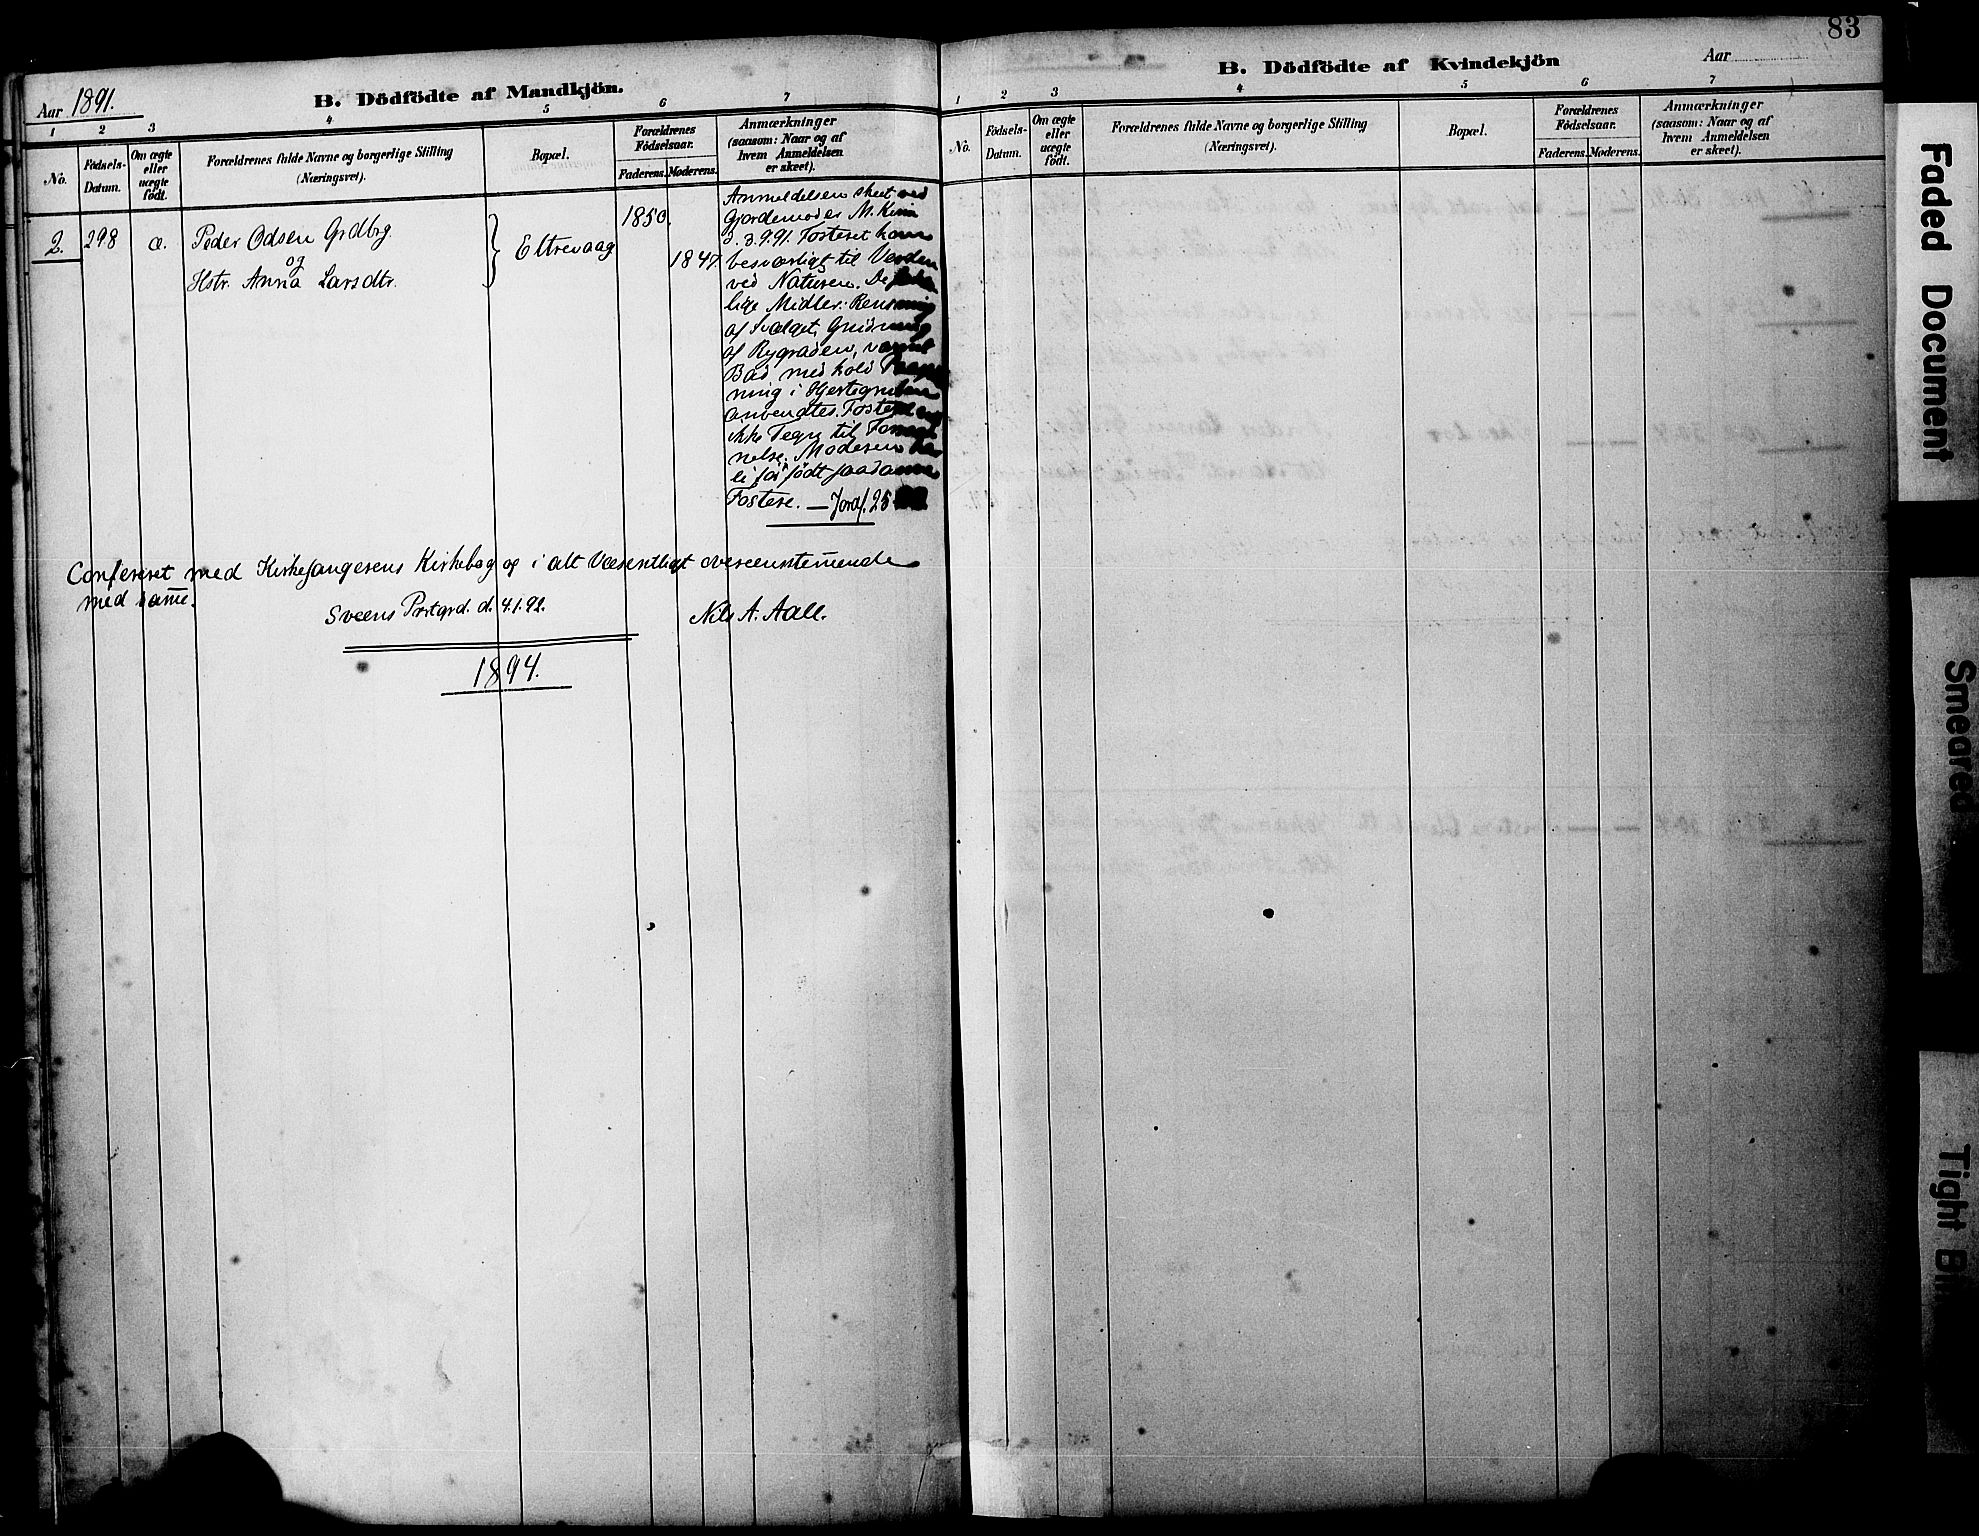 Aar 1891.
B. Dödfödte af Mandkjön.
1 2 3 4 5 6 7
No.
Födsels-
Datum.
Om ægte
eller
uægte
födt.
Forældrenes fulde Navne og borgerlige Stilling
(Næringsvei).
Bopæl.
Forældrenes
Födselsaar.
Faderens. Moderens.
Anmærkninger
(saasom: Naar og af
hvem Anmeldelsen
er skeet).
2. 298 æ. Peder Odsen Grdbrg
og
Hstr. Anna Larsdtr.
Eltrevaag
1850.
1847
Anmeldelsen skeet ved
Gjordemoder M.
d. 3.9.91. Fosteret kom
besværligt til Verden
ved Naturen. De
lige Midler: Rensning
af Svælget, Gnidning
af Rygraden, varmt
Bad med kold
ning i Hjertegruben
anvendtes. Fosteret
ikke Tegn til
nelse. Moderen har
før født saadanne
Fostere. — Jordf. 25
Confereret med Kirkesangerens Kirkebog og i alt Væsentligt overeenstemmende
med samme.
Sveens Præstgrd. d. 4.1.92. Nils A. Aall.
1894.
83
B. Dödfödte af Kvindekjön
Aar
1 2 3 4 5 6 7
No.
Födsels-
Datum.
Om ægte
eller
uægte
födt.
Forældrenes fulde Navne og borgerlige Stilling
(Næringsvei).
Bopæl.
Forældrenes
Födselsaar.
Faderens. Moderens.
Anmærkninger
(saasom: Naar og af
hvem Anmeldelsen
er skeet).
Faded Document
Smeared
Tight